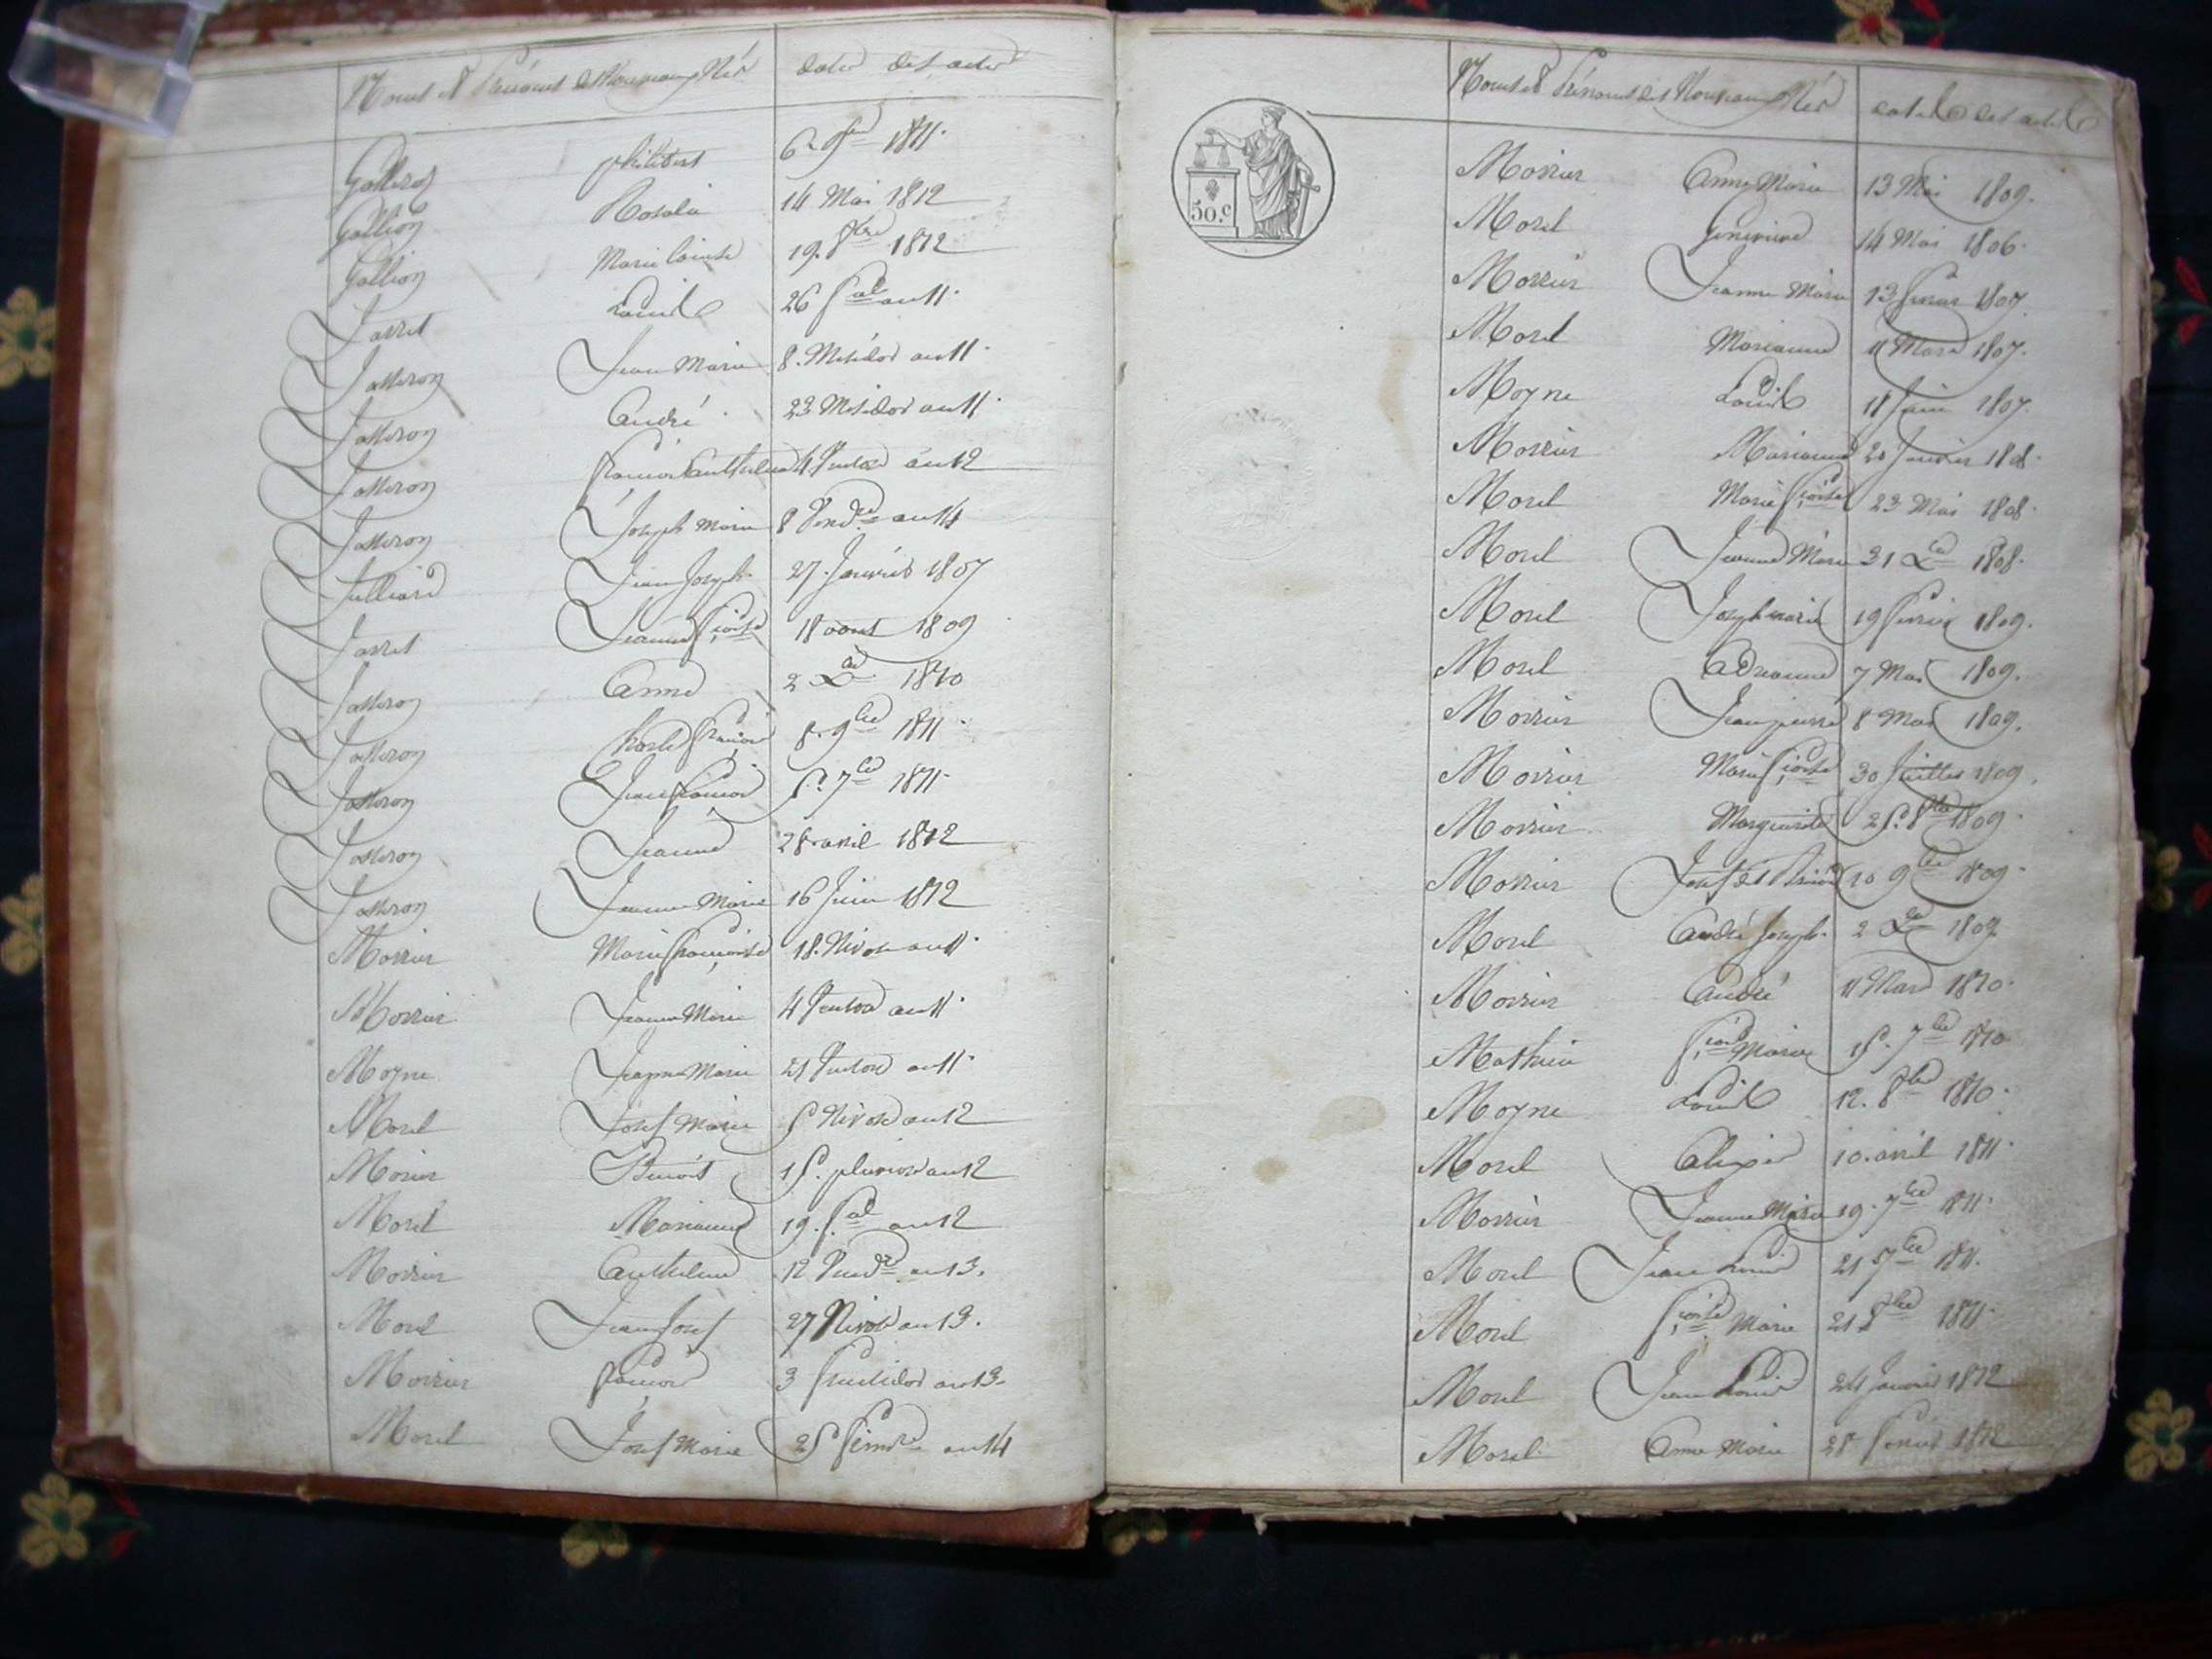 Noms & Prénoms des Nouveaux Nés dates des actes
philibert 1811.
Gallion Rosalie 14 Mai 1812
Gallion Marie 19. 8bre 1812
Jarret Louis 26 an 11.
Jean Marie 8. Messidor an 11.
André 23 Messidor an 11.
François Anthelme 4 Ventose an 12
Joseph Marie 8 Vendre an 14
Julliard Jean Joseph 27. Janvier 1807
Jarret Jeanne Foise 18 aout 1809
Anne 2 Xbre 1810
Charles François 8. 9bre 1811.
Jean François 7bre 1811.
Jeanne 28 avril 1812
Jeanne Marie 16 Juin 1812
Morrier Marie Françoise 18. Nivose an 11.
Morrier Jeanne Marie 4 Ventose an 11.
Moyne Jeanne Marie 21 Ventose an 11.
Morel Josef Marie 5 Nivose an 12
Morier Benoit 15. pluviose an 12
Morel Marianne 19. an 12
Morrier Anthelme 12 Vendre an 13.
Morel Jean Josef 27 Nivose an 13.
Morrier François 3 Fructidor an 13.
Morel Josef Marie 25 an 14
Noms & Prénoms des Nouveaux Nés dates des actes
50.c
Morrier Anne Marie 13 Mai 1809.
Morel Genevieve 14 Mai 1806.
Morrier Jeanne Marie 13 fevrier 1807.
Morel Marianne 11 Mars 1807.
Moyne Louis 18 Juin 1807.
Morrier Marianne 20 Janvier 1808.
Morel Marie Foise 23 Mai 1808.
Morel Jeanne Marie 31 Xbre 1808.
Morel Joseph marie 19 fevrier 1809.
Morel Adrianne 7 Mai 1809.
Morrier Jean pierre 8 Mai 1809.
Morrier Marie Foise 30 Juillet 1809.
Morrier Marguerite 25. 8bre 1809.
Morrier Josef 10 9bre 1809.
Morel André Joseph 2 Xbre 1809.
Morrier André 11 Mars 1810.
Mathieu Fois Marie 15. 7bre 1810
Moyne Louis 12. 8bre 1810.
Morel Alexis 10. avril 1811.
Morrier Jeanne Marie 19. 7bre 1811.
Morel Jean Louis 21 7bre 1811.
Morel Foise Marie 21 8bre 1811.
Morel Jean Louis 24 Janvier 1812
Morel Anne Marie 28 fevrier 1812